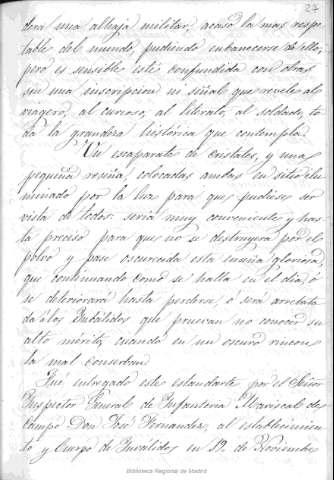 27
dera una alhaja militar, acaso la mas respe
table del mundo, pudiendo enbanecerse de ello;
pero es sensible esté confundida con otras
sin una inscripcion ni señal que revele al
viagero, al curioso, al literato, al soldado, to
da la grandeza historica que contempla.
Un escaparate de cristales, y una
pequeña reseña, colocadas ambas en sitio ilu
minado por la luz para que pudiese ser
vista de todos: seria muy conveniente y has
ta preciso para que no se destruyera por el
polvo y pase oscurecida esta insinia gloriosa,
que continuando como se halla en el dia, ó
se deteriorará hasta perderse, ó sera arrebata
da á los Inbalidos que prueban no conocer su
alto merito, cuando en un oscuro rincon
la mal conserban.
Fué entregado este estandarte por el Señor
Inspector General de Infanteria Mariscal de
Campo Don José Fernandez, al establecimien
to y Cuerpo de Inválidos en 19. de Noviembre
Biblioteca Regional de Madrid